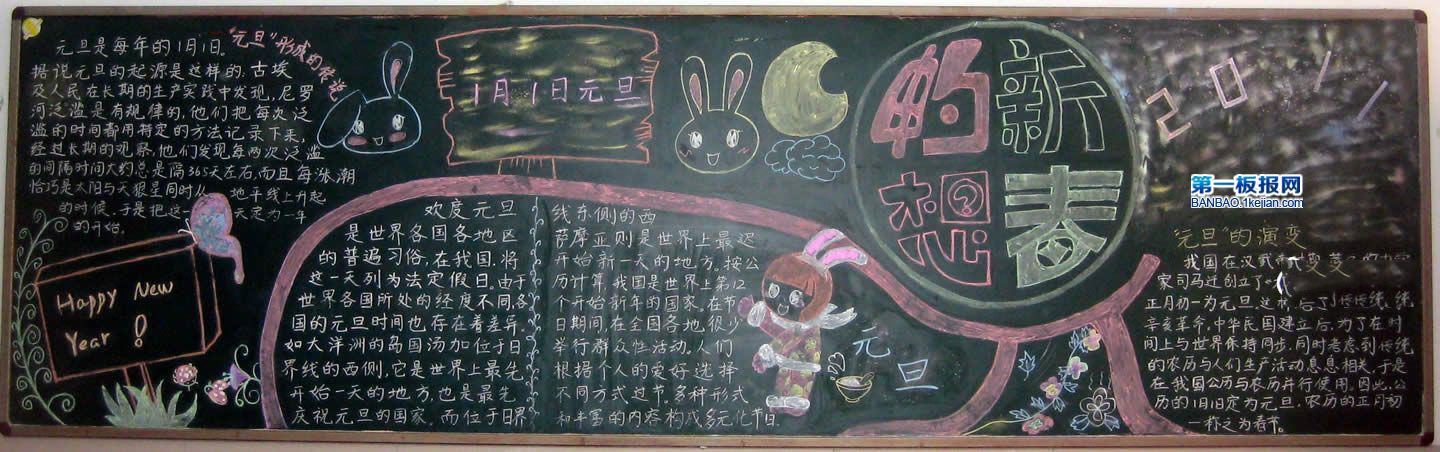 "元旦"形成的传说
元旦是每年的1月1日。
据说元旦的起源是这样的.古埃
及人民在长期的生产实践中发现,尼罗
河泛滥是有规律的,他们把每次泛
滥的时间都用特定的方法记录下来,
经过长期的观察,他们发现每两次泛滥
的间隔时间大约总是隔365天左右,而且每涨潮
恰巧是太阳与天狼星同时从 地平线上升起
的时候.于是把这一 天定为一年
的开始.
Happy New
Year !
1月1日元旦
欢度元旦
是世界各国各地区
的普遍习俗,在我国.将
这一天列为法定假日.由于
世界各国所处的经度不同,各
国的元旦时间也存在着差异,
如大洋洲的岛国汤加位于日
界线的西侧,它是世界上最先
开始一天的地方,也是最先
庆祝元旦的国家.而位于日界
线东侧的西
萨摩亚则是世界上最迟
开始新一天的地方.按公
历计算,我国是世界上第12
个开始新年的国家.在节
日期间,在全国各地,很少
举行群众性活动.人们
根据个人的爱好选择
不同方式过节.多种形式
和丰富的内容构成多元化节日.
元旦
新春
的想
?
2011
第一板报网
BANBAO.1kejian.com
"元旦"的演变
我国在汉武帝
家司马迁创立了
正月初一为元旦.这种
辛亥革命,中华民国建立后.为了在时
间上与世界保持同步.同时考虑到传统
的农历与人们生产活动息息相关.于是
在我国公历与农历并行使用.因此.公
历的1月1日定为元旦.农历的正月初
一称之为春节.